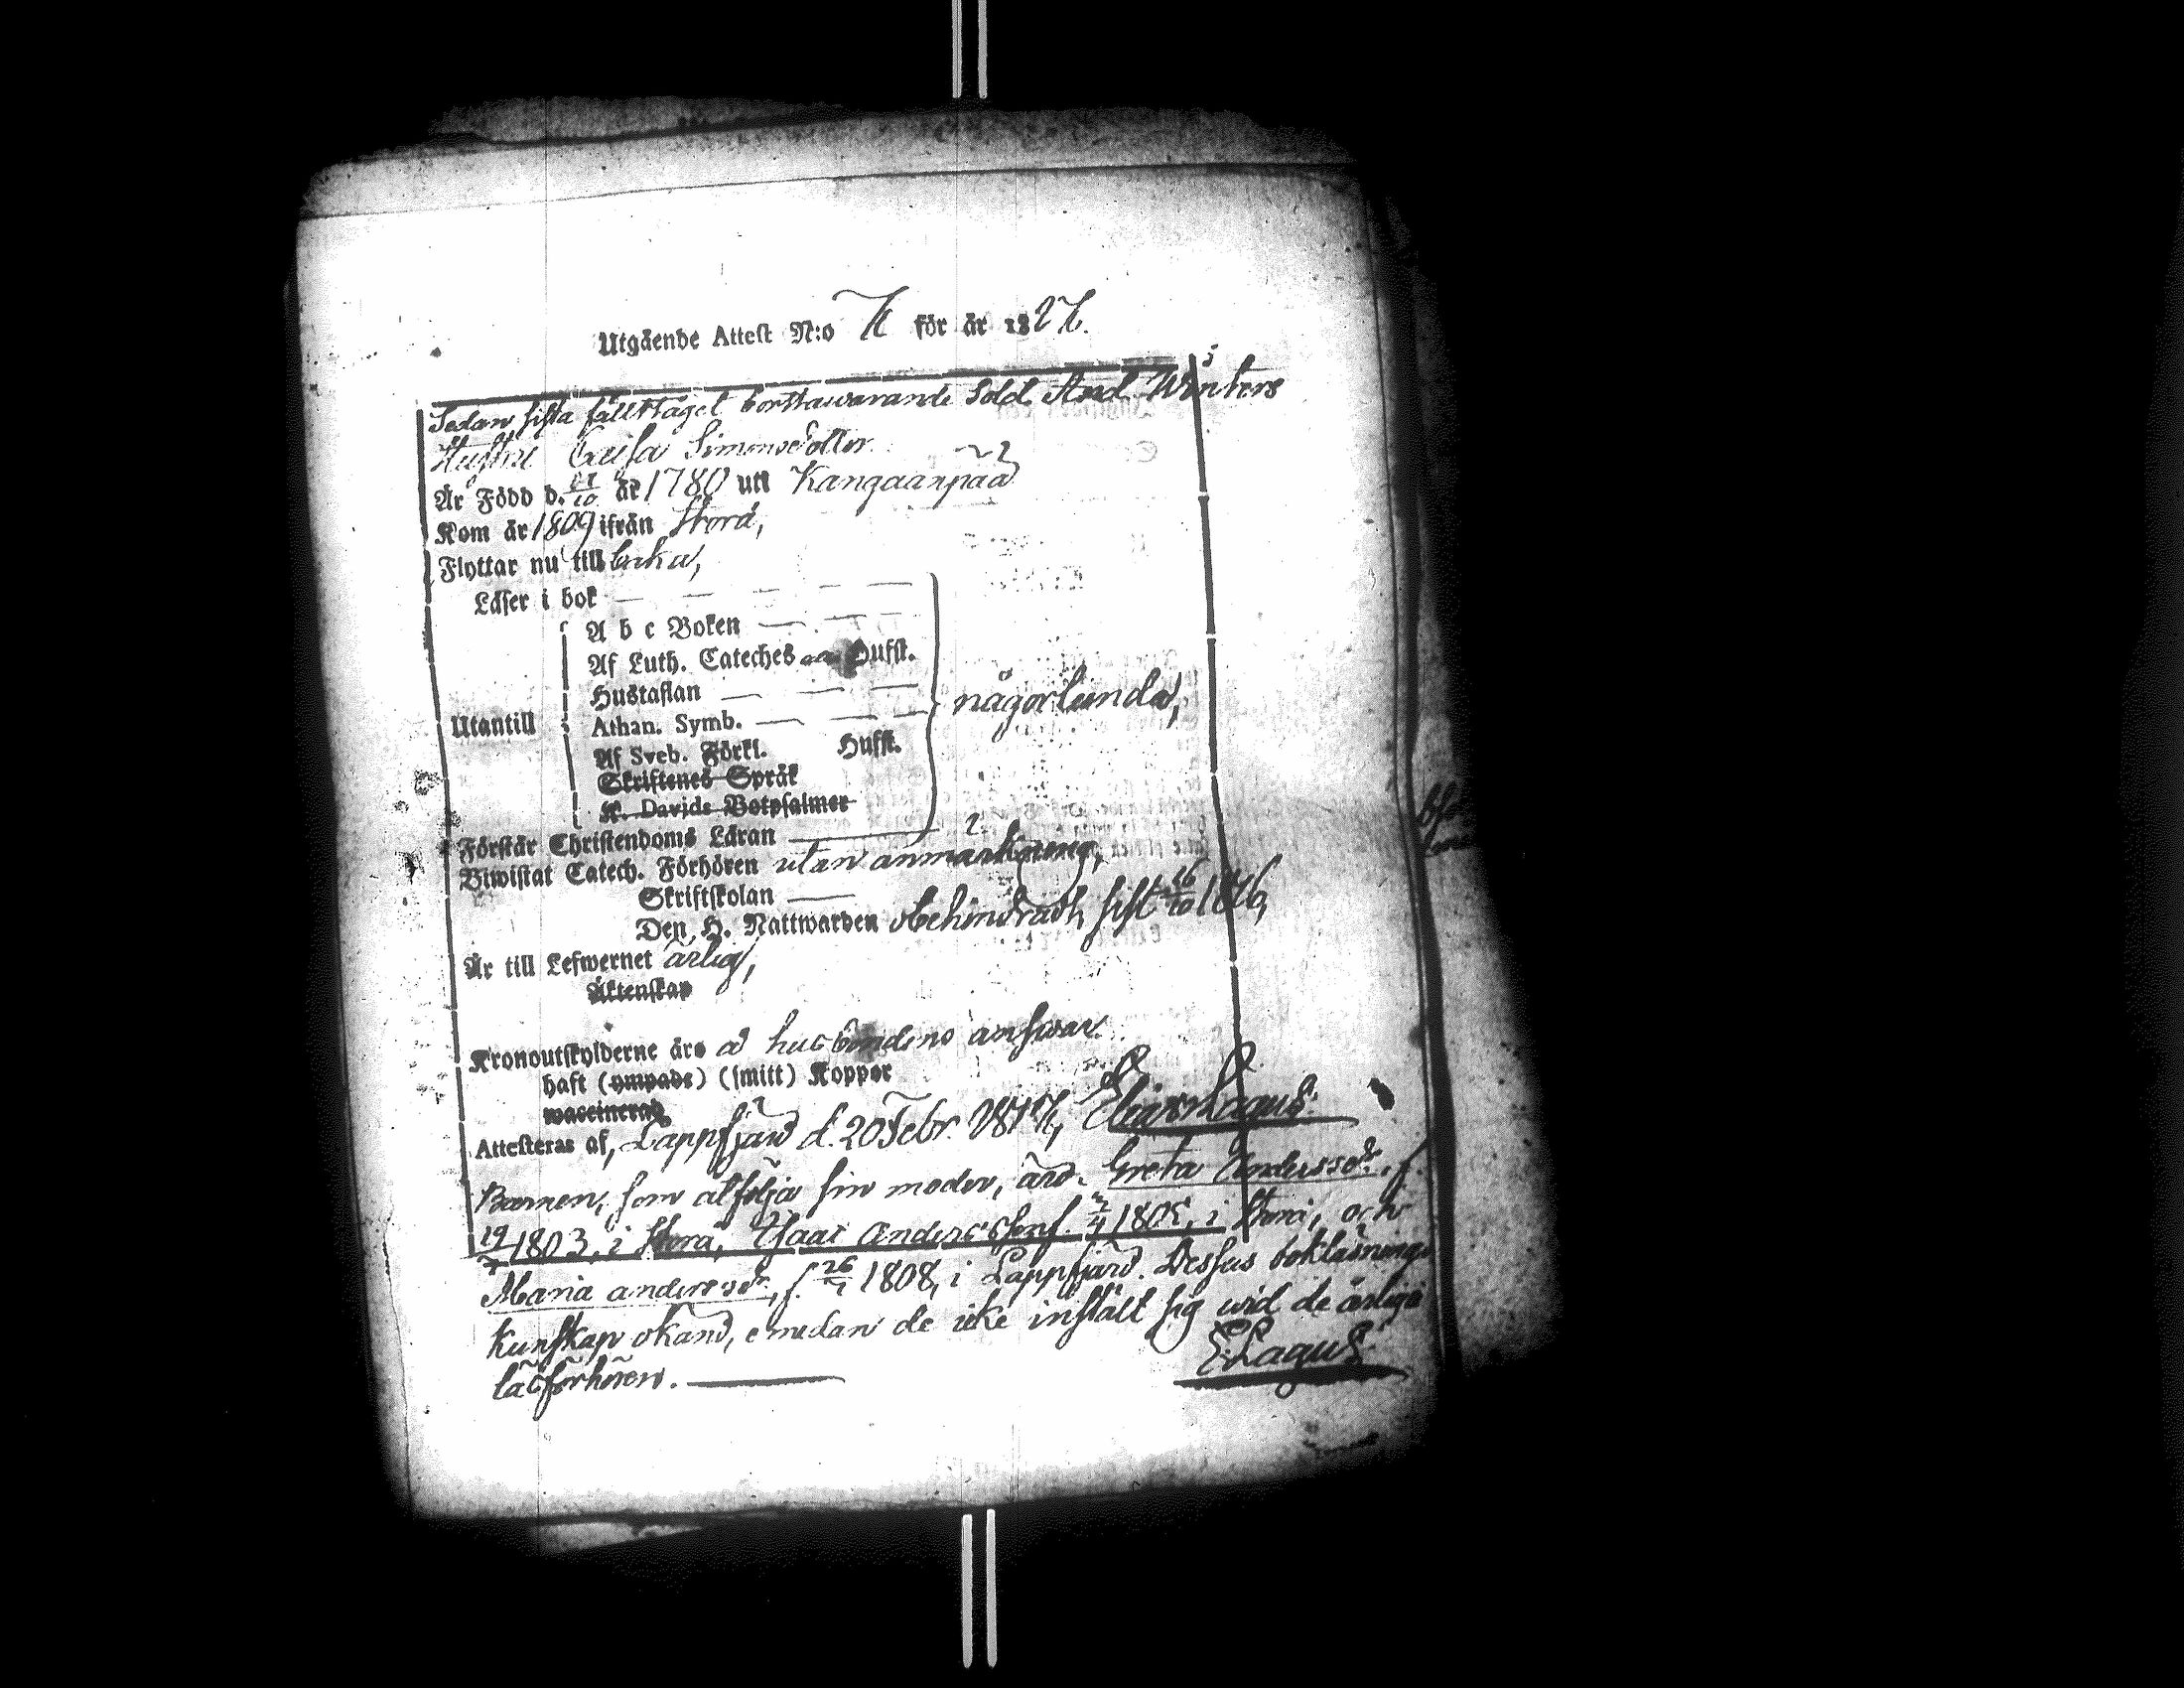 Utgående Attest N:o 7 för år 1827.
Sedan sista fälttåget borttawarande Sold. And. Winters
Hustru Caisa Simonsdotter
Är Född d. 10 år 1780 uti Kangaanpää
Kom år 1809 ifrån Storå,
Flyttar nu till baka,
Läser i bok — — — —
A b c Boken — — — —
Af Luth. Cateches Hufst.
Hustaflan — — —
någorlunda,
Utantill Athan. Symb. — — — —
Af Sveb. Förkl. Hufst.
Skriftenes Språk
K. Davids Botpsalmer
Förstår Christendoms Läran
Biwistat Catech. Förhören utan anmärkning,
Skriftskolan —
Den H. Nattwarden obehindradt, sist 16/10
Är till Lefwernet ärlig,
Äktenskap
Kronoutskylderne äro å husbondens answar.
haft (ympade) (smitt) Koppor
waccinerad
Attesteras af, Lappfjärd d. 20 Febr. Elias Lagus.
Barnen, som åtfölja sin moder, äro. Greta Anderssdr. f.
19 1803, i Storå, Isaac Andersson f. 4 1805, i Storå, och
Maria anderssdr, f. 26 1808, i Lappfjärd. Dessas bokläsnings
kunskap okänd, emedan de icke instält sig wid de årliga
läsförhören. —
E Lagus